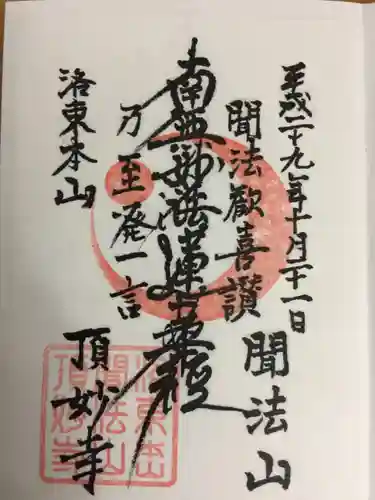 平成二十九年十月二十一日
聞法歓喜讃
聞法山
南無妙法蓮華経
乃至発一言
頂妙寺
洛東本山
洛東本山
聞法山
頂妙寺